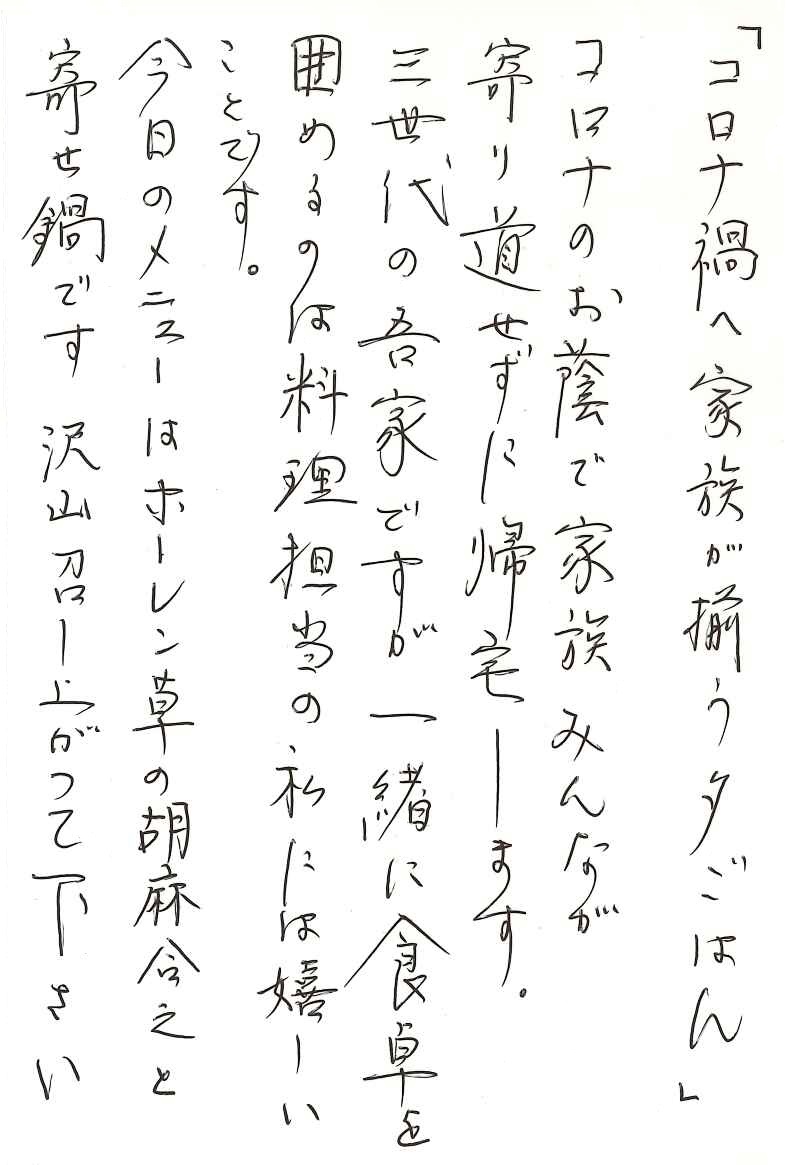 「コロナ禍へ家族が揃う夕ごはん」
コロナのお蔭で家族みんなが
寄り道せずに帰宅します。
三世代の吾家ですが一緒に食卓を
囲めるのは料理担当の私には嬉しい
ことです。
今日のメニューはホーレン草の胡麻合えと
寄せ鍋です 沢山召し上がって下さい